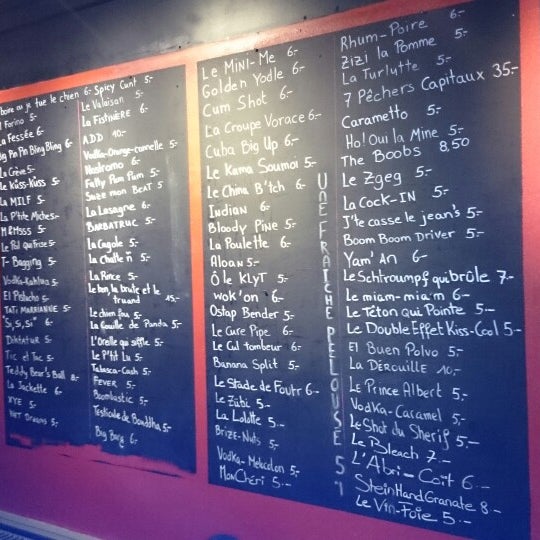 boire ou je tue le chien 6.-
Forino 5.-
La Fessée 6.-
Big Pin Pin Bling Bling 6.-
La Crève 5.-
Le Kiss-Kiss 5.-
La MILF 5.-
La P'tite Miches.-
M&Msss 5.-
Le Pal qui Froisse 5.-
T-Bagging 5.-
Vodka-Kahlua 5.-
El Pistacho 5.-
TATI MARRIANNE 5.-
"Si, Si, Si" 6.-
Diktatur 5.-
Tic et Tac 5.-
Teddy Bear's Ball 8.-
La Jackette 6.-
XYE 5.-
Wet Dreams 5.-
Spicy Cunt 5.-
Le Valaisan 5.-
La Fistinière 6.-
ADD 10.-
Vodka-Orange-cannelle 5.-
Nostromo 6.-
Fatty Pum Pum 5.-
Suze mon Beat 5
La Lasagne 6.-
BARBATRUC 5.-
La Cagole 5.-
La Chatte 5.-
La Pince 5.-
Le bon, la brute et le truand 15.-
Le chien fou 5.-
La Couille de Panda 5.-
L'Oreille qui siffle 5.-
Le P'tit Lu 5.-
Tabasco-Cash 5.-
FEVER 5.-
Boombastic 5.-
Testicule de Bouddha 5.-
Big Bang 6.-
Le MINI-Me 6.-
Golden Yodle 6.-
Cum Shot 6.-
La Croupe Vorace 6.-
Cuba Big Up 6.-
Le Kama Soumoi 5.-
Le China B*tch 6.-
Indian 6.-
Bloody Pine 5.-
La Poulette 6.-
Aloan 5.-
Ô le KLyT 5.-
wok'on 6.-
Ostap Bender 5.-
Le Cure Pipe 6.-
Le Cul tambour 6.-
Banana Split 5.-
Le Stade de Foutr 6.-
Le Zübi 5.-
La Lolotte 5.-
Brize-Nuts 5.-
Vodka-Melocolon 5.-
MonChéri 5.-
UNE FRAICHE PELLOUSE 5.-
Rhum-Poire 6.-
Zizi la Pomme 5.-
La Turlutte 5.-
7 Pêchers Capitaux 35.-
Carametto 5.-
Ho! Oui la Mine 5.-
The Boobs 8,50
Le Zgeg 5.-
La Cock-IN 5.-
J'te casse le jean's 5.-
Boom Boom Driver 5.-
Yam'An 6.-
Le Schtroumpf qui brûle 7.-
Le miam-miam 6.-
Le Téton qui Pointe 5.-
Le Double Effet Kiss-Cool 5.-
El Buen Polvo 5.-
La Dérouille 10.-
Le Prince Albert 5.-
Vodka-Caramel 5.-
Le Shot du Sherif 5.-
Le Bleach 7.-
L'Abri-Coït 6.-
Stein Hand Granate 8.-
Le Vin-Foie 5.-